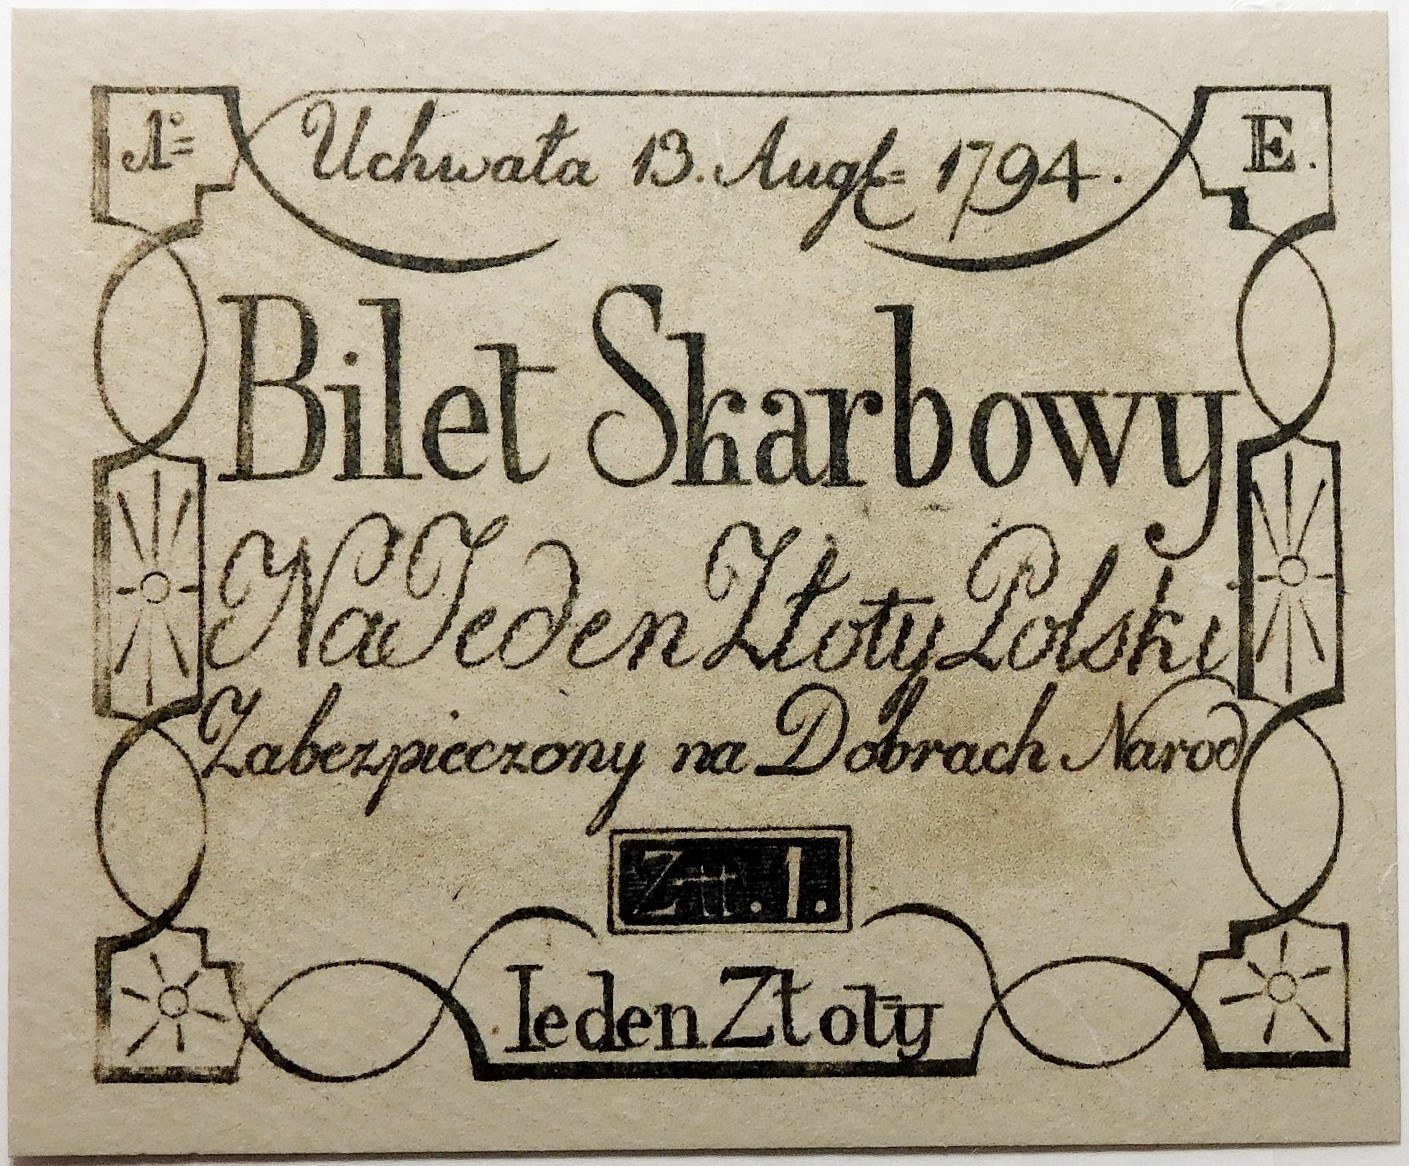 Aº= E.
Uchwała 13. Augt= 1794.
Bilet Skarbowy
Na Jeden Złoty Polski
Zabezpieczony na Dobrach Narod
Złł. 1.
Ieden Złoty